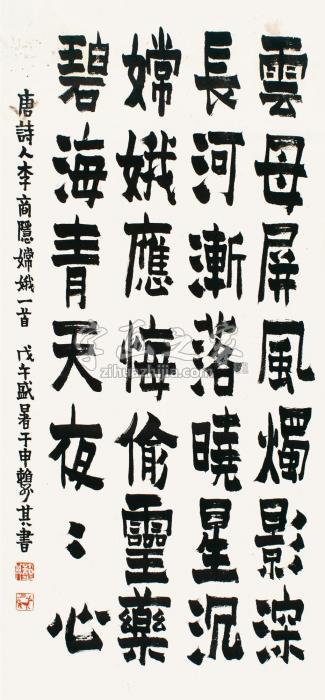 雲母屏風燭影深
長河漸落曉星沉
嫦娥應悔偷靈藥
碧海青天夜〻心
唐詩人李商隱嫦娥一首 戊午盛暑于申賴少其書
字画之家
zihuazhijia.com